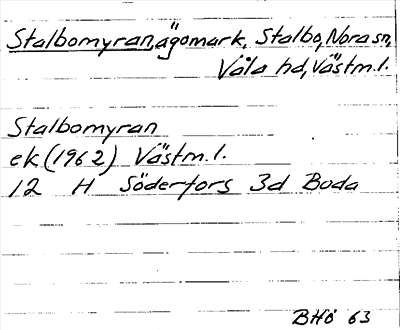 Stalbomyran, ägomark, Stalbo, Nora sn,
Våla hd, Västm.l.
Stalbomyran
ek (1962) Västm.l.
12 H Söderfors 3d Buda
BHö 63